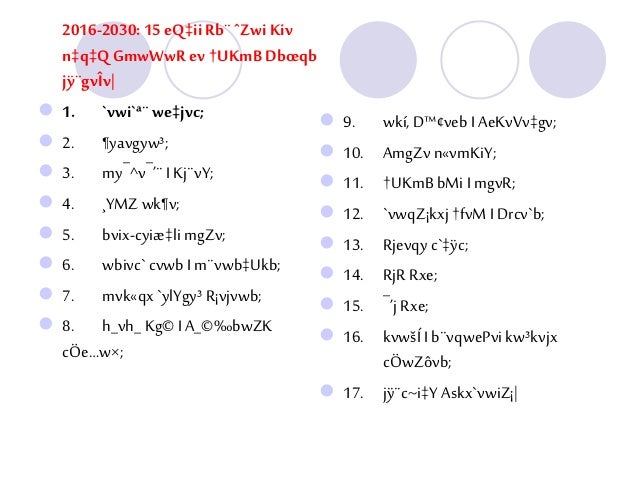 2016-2030: 15 eQ‡ii Rb¨ ˆZwi Kiv
n‡q‡Q GmwWwR ev †UKmB Dbœqb
jÿ¨gvÎv|
1. `vwi`ª¨ we‡jvc;
2. ¶yavgyw³;
3. my¯^v¯’¨ I Kj¨vY;
4. ¸YMZ wk¶v;
5. bvix-cyiæ‡li mgZv;
6. wbivc` cvwb I m¨vwb‡Ukb;
7. mvk«qx `ylYgy³ R¡vjvwb;
8. h_vh_ Kg© I A_©‰bwZK
cÖe...w×;
9. wkí, D™¢veb I AeKvVv‡gv;
10. AmgZv n«vmKiY;
11. †UKmB bMi I mgvR;
12. `vwqZ¡kxj †fvM I Drcv`b;
13. Rjevqy c`‡ÿc;
14. RjR Rxe;
15. ¯’j Rxe;
16. kvwšÍ I b¨vqwePvi kw³kvjx
cÖwZôvb;
17. jÿ¨ c~i‡Y Askx`vwiZ¡|